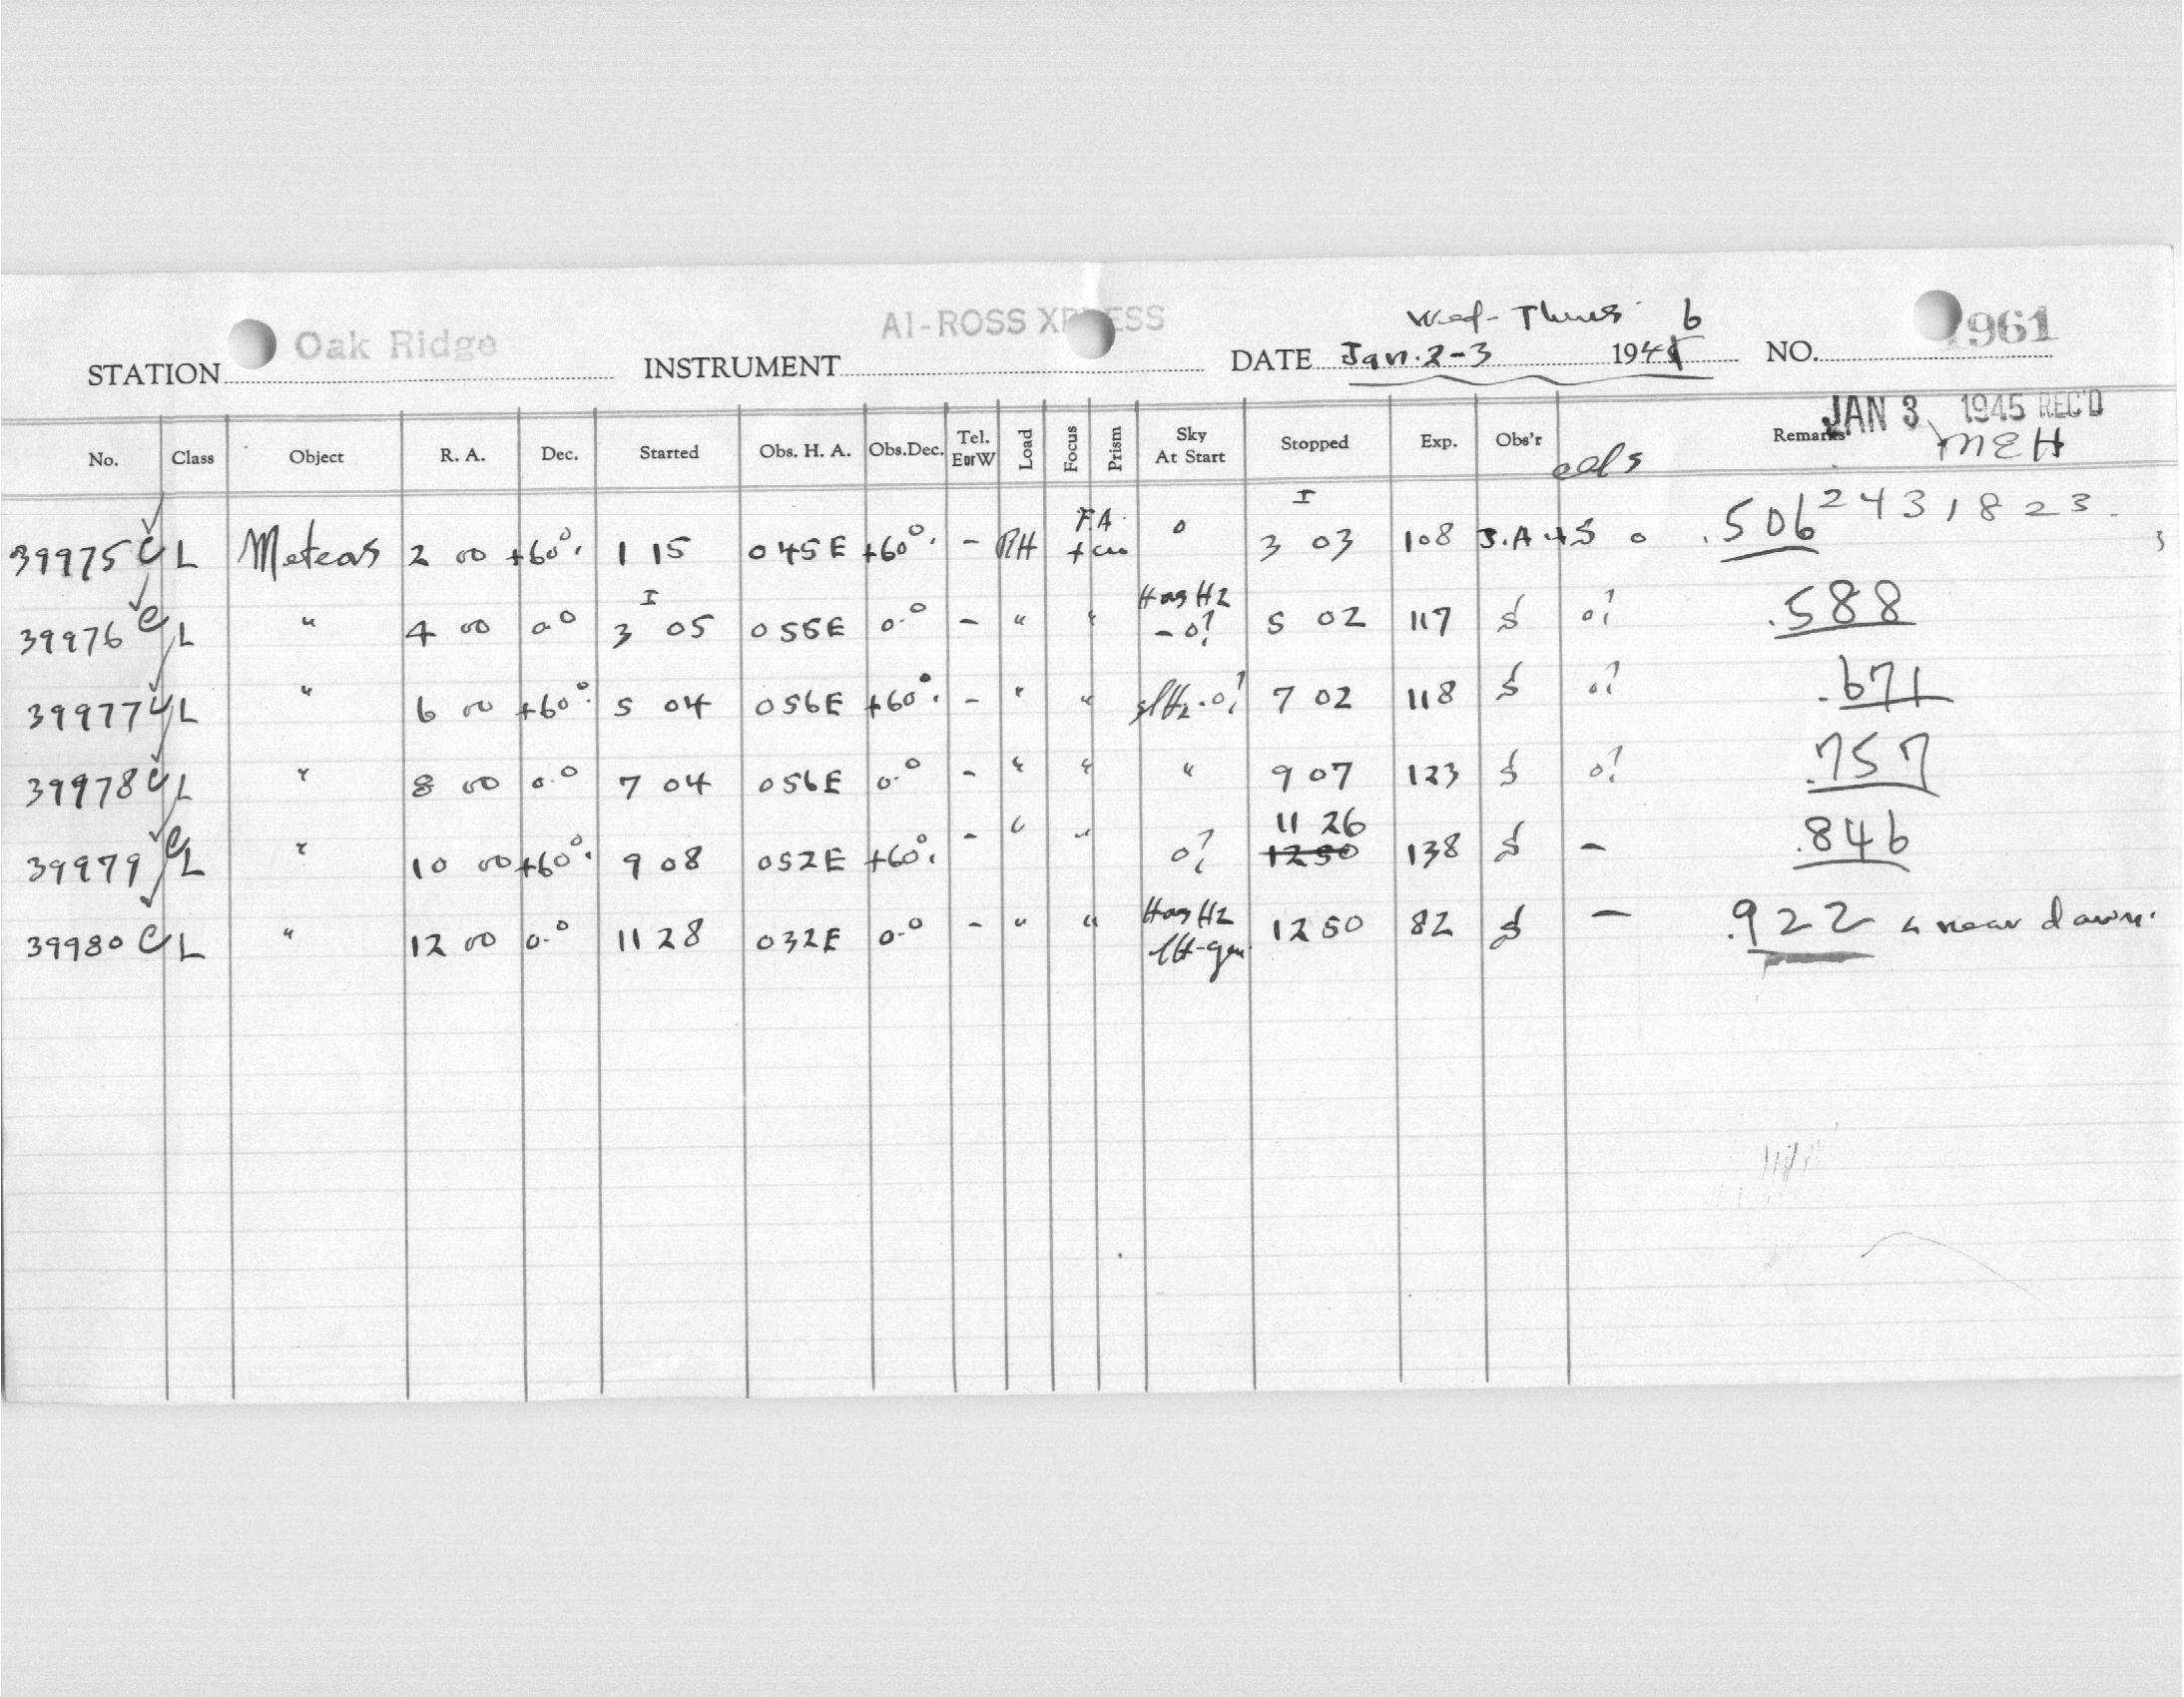 Wed-Thurs. 6
STATION Oak Ridge INSTRUMENT AI-ROSS XPRESS DATE Jan. 2-3 1945 NO. 961
JAN 3 1945 REC'D
No. Class Object R. A. Dec. Started Obs. H. A. Obs.Dec. Tel. E or W Load Focus Prism Sky At Start Stopped Exp. Obs'r eds Remarks MEH
39975 C L Meteors 2 00 +60°. 1 15 045E +60°. - RH FA + cw 0 I 3 03 108 0 .506 2431823.
39976 C L " 4 00 0.0 I 3 05 055E 0.0 - " " Has Hz - 0? 5 02 117 S 0? .588
39977 C L " 6 00 +60°. 5 04 056E +60°. - " " sl Hz - 0? 7 02 118 S 0? .671
39978 C L " 8 00 0.0 7 04 056E 0.0 - " " " 9 07 123 S 0? .757
39979 C L " 10 00 +60°. 9 08 052E +60°. - " " 0? 11 26 1250 138 S - .846
39980 C L " 12 00 0.0 11 28 032E 0.0 - " " Has Hz 12 50 82 S - .922 near dawn.